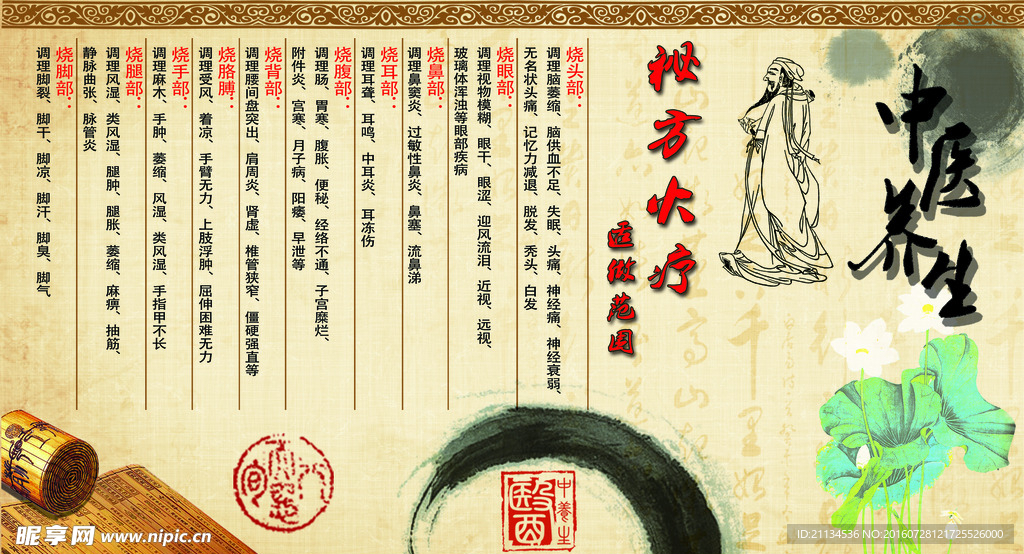 中医养生
秘方火疗
适做范围
烧头部：
调理脑萎缩、脑供血不足、失眠、头痛、神经痛、神经衰弱、
无名状头痛、记忆力减退、脱发、秃头、白发
烧眼部：
调理视物模糊、眼干、眼涩、迎风流泪、近视、远视、
玻璃体浑浊等眼部疾病
烧鼻部：
调理鼻窦炎、过敏性鼻炎、鼻塞、流鼻涕
烧耳部：
调理耳聋、耳鸣、中耳炎、耳冻伤
烧腹部：
调理肠、胃寒、腹胀、便秘、经络不通、子宫糜烂、
附件炎、宫寒、月子病、阳痿、早泄等
烧背部：
调理腰间盘突出、肩周炎、肾虚、椎管狭窄、僵硬强直等
烧胳膊：
调理受风、着凉、手臂无力、上肢浮肿、屈伸困难无力
烧手部：
调理麻木、手肿、萎缩、风湿、类风湿、手指甲不长
烧腿部：
调理风湿、类风湿、腿肿、腿胀、萎缩、麻痹、抽筋、
静脉曲张、脉管炎
烧脚部：
调理脚裂、脚干、脚凉、脚汗、脚臭、脚气
中养生
醫
昵享网 www.nipic.cn
ID:21134536 NO:20160728121725526000